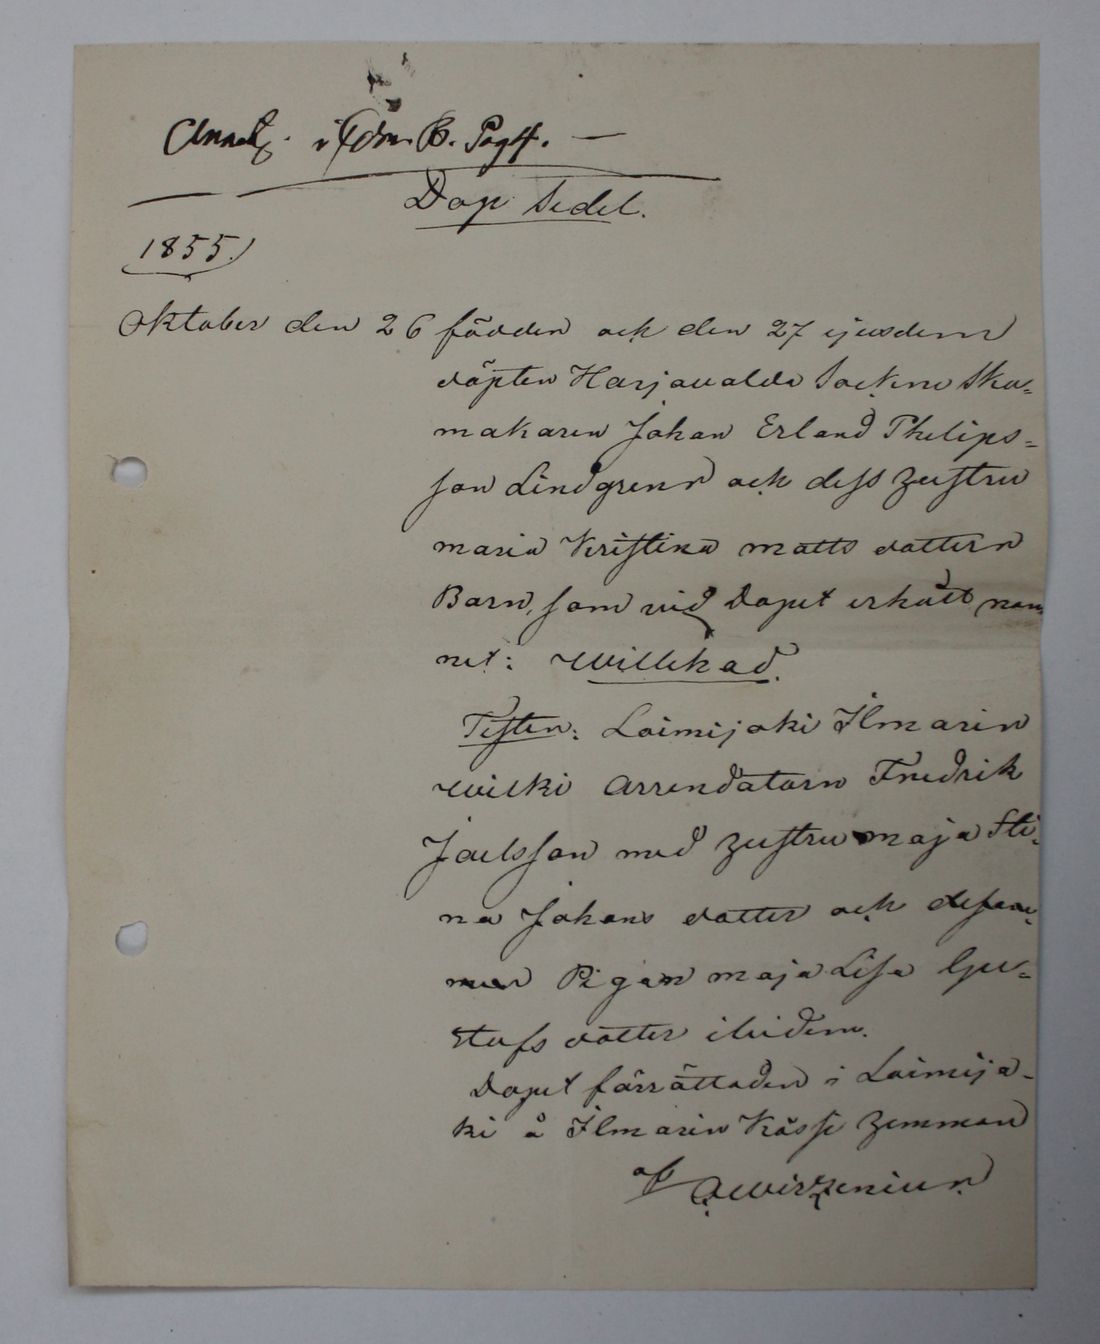 Dop Sedel.
1855.
Oktober den 26 födder och den 27 ejusdem
döpter Harjavalda Sockens Sko-
makaren Johan Erland Philips-
son Lindgrens och dess Hustru
Maria Kristina Matts dotters
Barn, som vid Dopet erhållt nam
net: Willehad.
Testes: Loimijoki Ilmarin
Wilki Arrendatorn Fredrik
Joelsson med Hustru Maja Sti-
na Johans dotter och
Pigan Maja Lisa Gu-
stafs dotter ibidem.
Dopet förrättades i Loimijo-
ki å Ilmarin Hemman
af